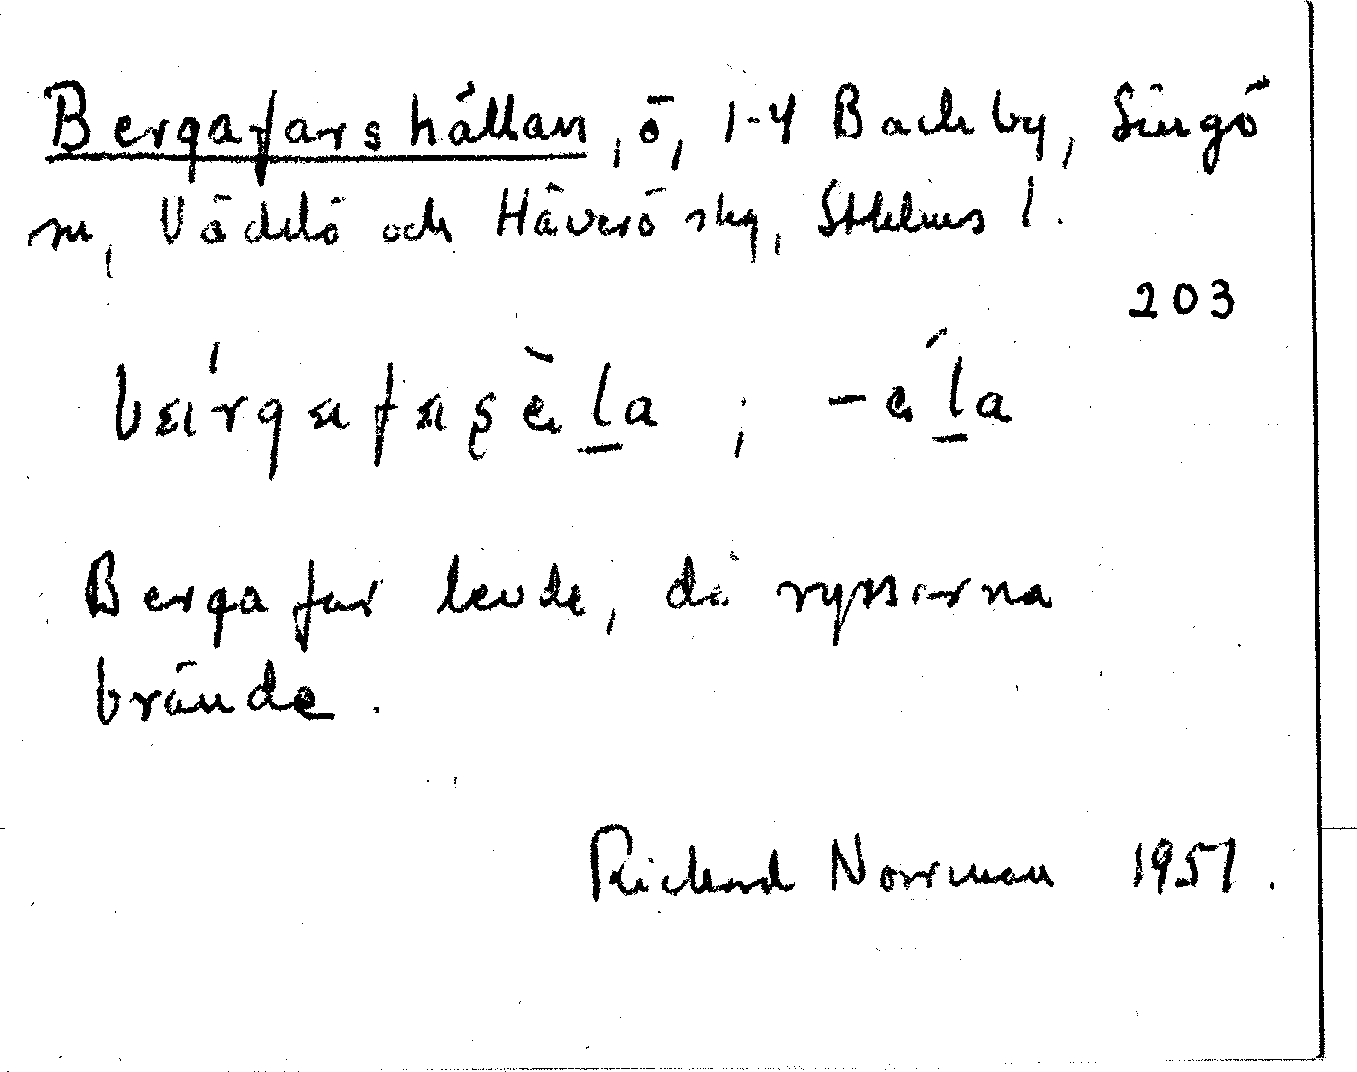 Bergafars hällan, ö, 1-4 Backby, Singö
sn, Väddö och Häverö skg, Sthlms l.
203
Berga far levde, då ryssarna
brände.
Richard Norrman 1951.